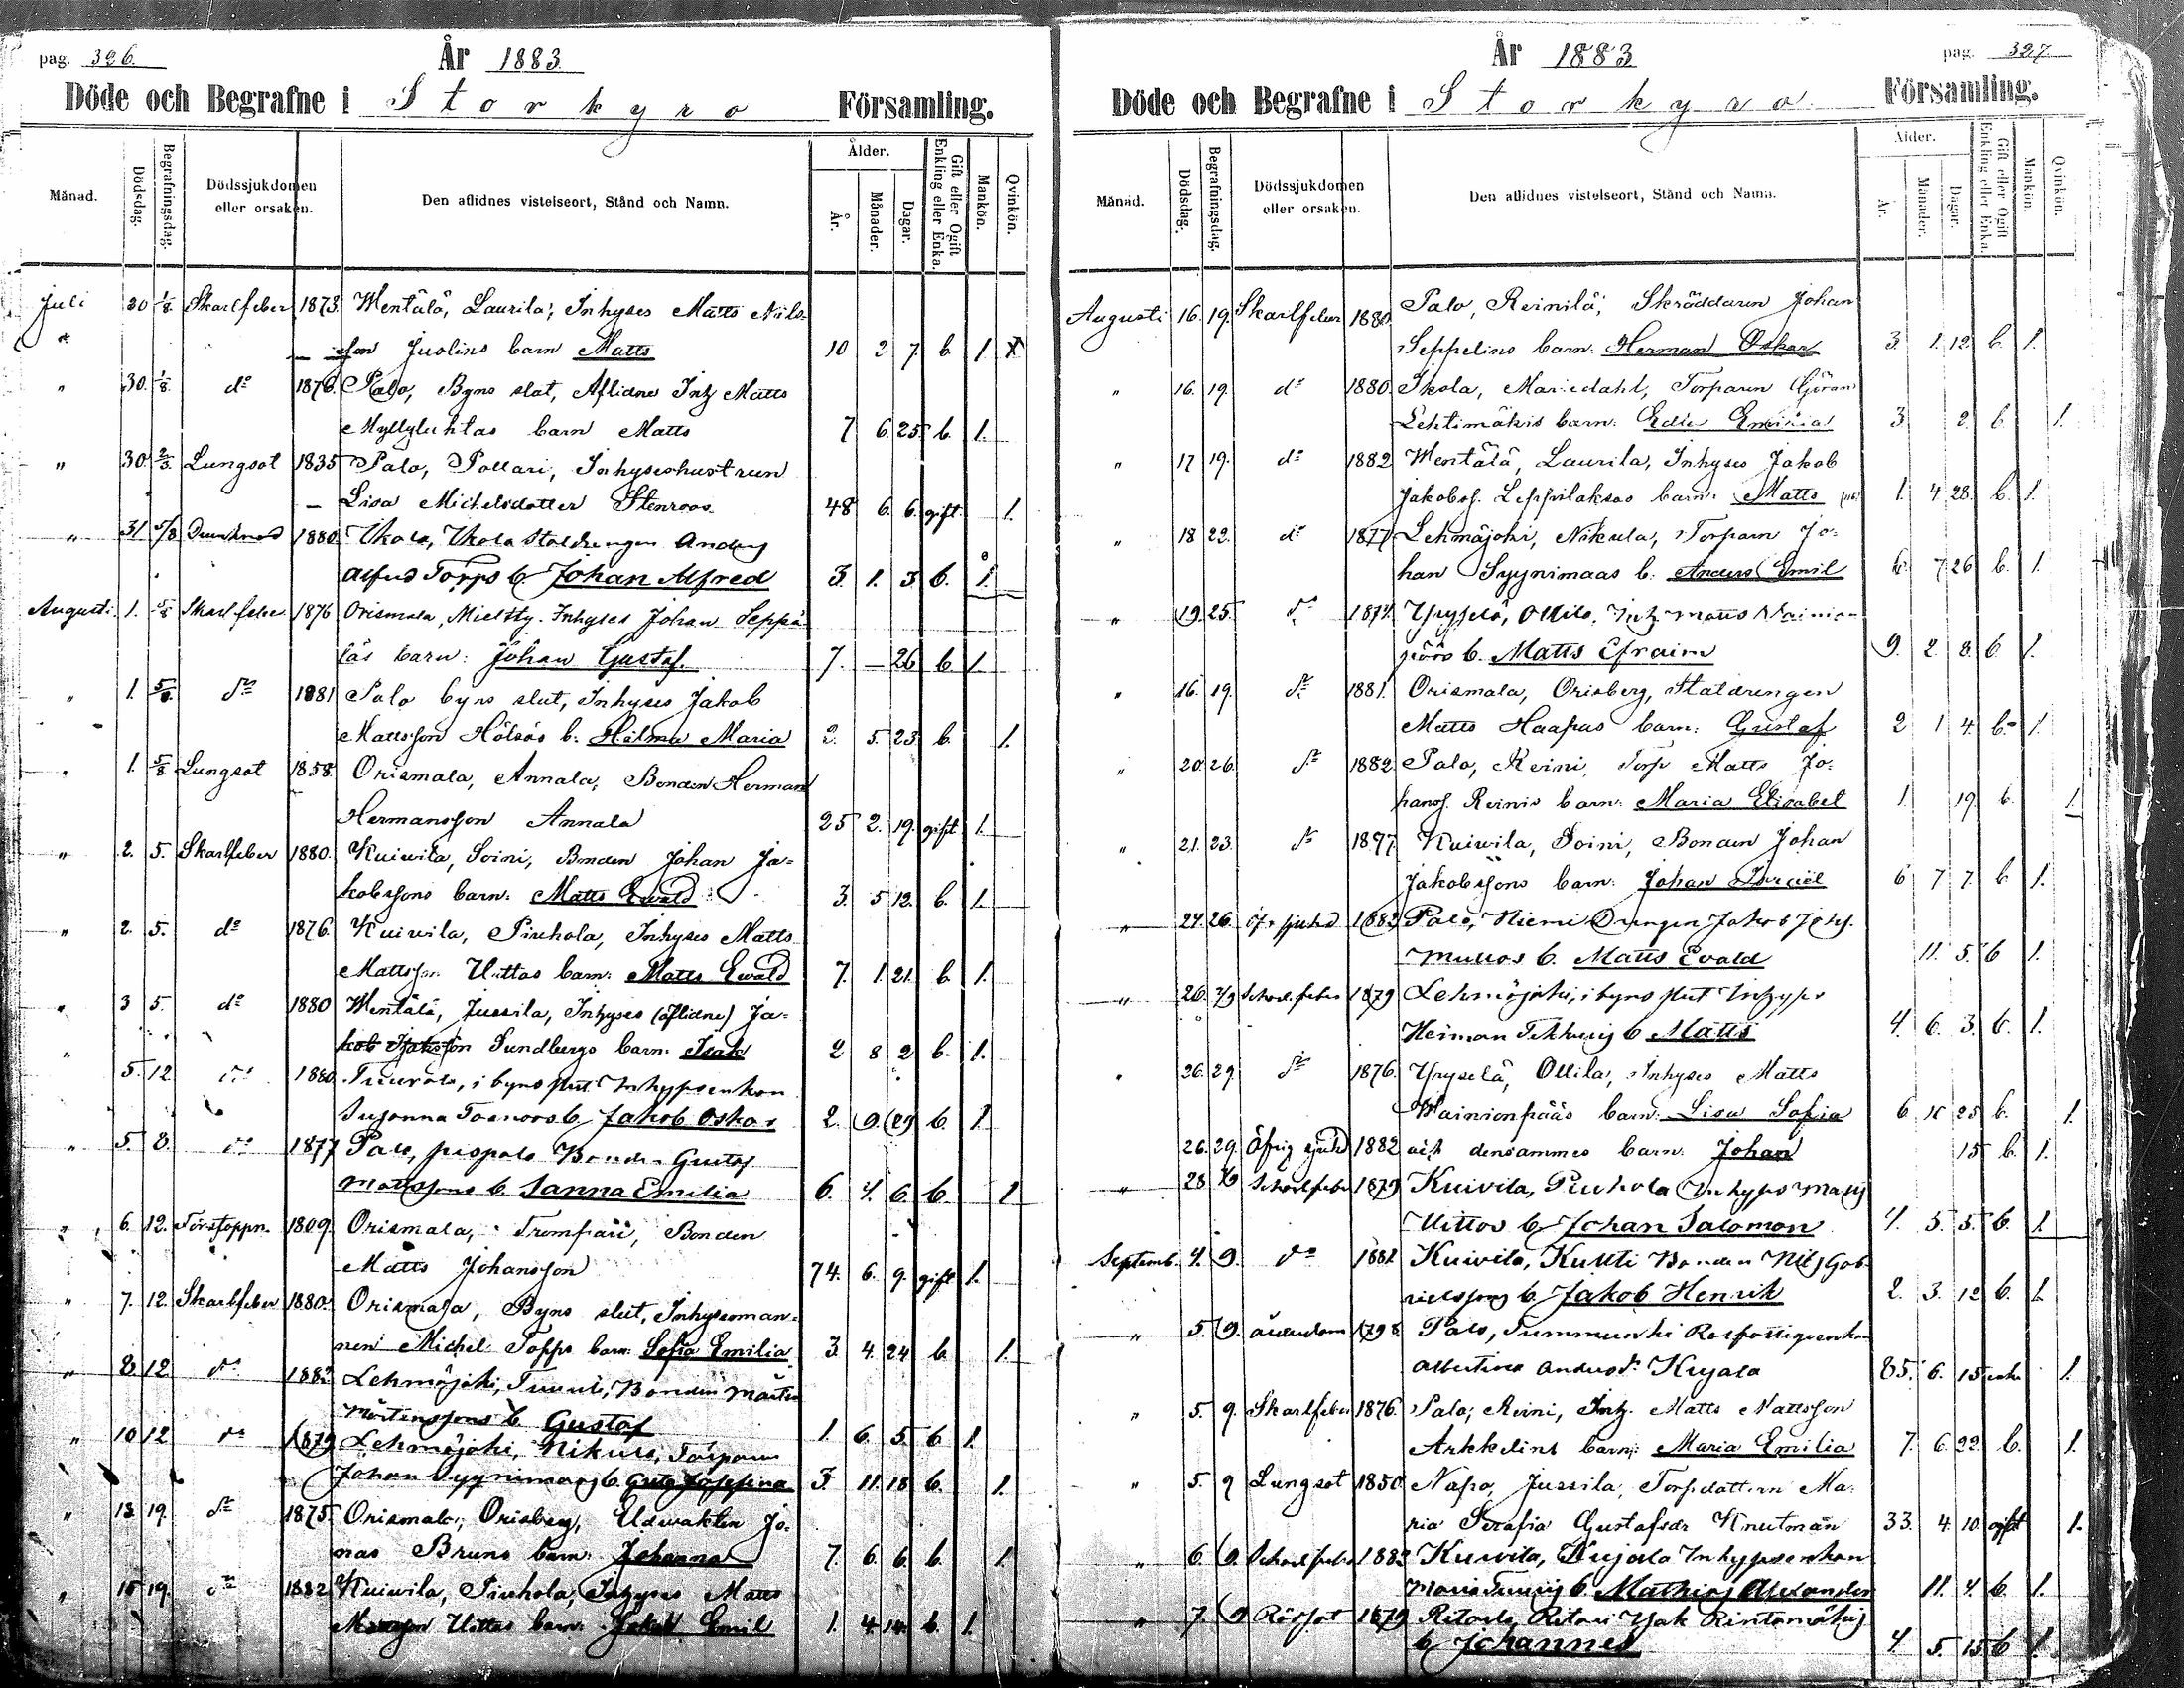 pag. 326.
År 1883.
Döde och Begrafne i Storkyro Församling.
Månad.
Dödsdag.
Begrafningsdag.
Dödssjukdomen eller orsaken.
Den aflidnes vistelseort, Stånd och Namn.
Ålder.
År.
Månader.
Dagar.
Gift eller Ogift Enkling eller Enka.
Mankön.
Qvinkön.
Juli 30 1/8. Skarlfeber 1873. Mentälä, Laurila; Inhyses Matts Nils-
" son Juslins barn Matts 10 2 7. b. 1. X
" 30. 1/8. do 1876. Palo, Byns slut, Aflidne Inh Matts
Myllyluhtas barn Matts 7 6. 25. b. 1.
" 30. Lungsot 1835 Palo, Pollari, Inhyseshustrun
Lisa Michelsdotter Stenroos 48 6. 6. gift 1.
" 31 5/8 1880. Ukola, Ukola Staldrengen Anders
Alfred Topps b. Johan Alfred 3. 1. 3. b. 1.
Augusti. 1. 5/8 Skarlfeber 1876 Orismala, Mieltty. Inhyses Johan Seppä-
läs barn: Johan Gustaf. 7. — 26 b. 1.
" 1. 5/8. do 1881 Palo byns slut, Inhyses Jakob
Mattsson Hölsös b: Hilma Maria 2. 5. 23. b. 1.
" 1. 5/8. Lungsot 1858. Orismala, Annala, Bonden Herman
Hermansson Annala 25 2. 19. gift 1.
" 2. 5. Skarlfeber 1880. Kuivila, Soini, Bonden Johan Ja-
kobssons barn: Matts Ewald 3. 5 12. b. 1.
" 2. 5. do 1876. Kuivila, Piuhola, Inhyses Matts
Mattsson Uittos barn: Matts Ewald 7. 1. 21. b. 1.
" 3 5. do 1880 Mentälä, Jussila, Inhyses (aflidne) Ja-
kob Jakobson Sundbergs barn: Isak 2 8 2 b. 1.
" 5. 12. do 1880. Tuurala, i byns slut Inhysenkan
Susanna b. Jakob Oskar 2. 9. 29 b. 1.
" 5. 8. do 1877 Palo, pispala Bonden Gustaf
Mattssons b. Sanna Emilia 6. 4. 6. b. 1
" 6. 12. Törstoppn. 1809. Orismala, Trompari, Bonden
Matts Johansson 74. 6. 9. gift 1.
" 7. 12. Skarlfeber 1880. Orismala, Byns slut, Inhysesman-
nen Michel Topps barn: Sofia Emilia 3. 4. 24 b. 1.
" 8. 12 do 1882 Lehmäjoki, Tuuri, Bonden Mårten
Mårtenssons b. Gustaf 1. 6. 5. b 1.
" 10 12 do 1879 Lehmäjoki, Nikula, Torparn
Johan Syynimaas b. Greta Josefina 3. 11. 18 b. 1.
" 13. 19. do 1875. Orismala, Orisberg, Udwakten Jo-
nas Bruns barn: Johanna 7. 6. 6. b. 1.
" 15 19. do 1882. Kuivila, Piuhola, Inhyses Matts
Uittos barn: Jakob Emil 1. 4. 14. b. 1.
År 1883.
pag. 327.
Döde och Begrafne i Storkyro Församling.
Månad.
Dödsdag.
Begrafningsdag.
Dödssjukdomen eller orsaken.
Den aflidnes vistelseort, Stånd och Namn.
Ålder.
År.
Månader.
Dagar.
Gift eller Ogift Enkling eller Enka.
Mankön.
Qvinkön.
Augusti 16. 19. Skarlfeber 1880. Palo, Reinilä; Skräddaren Johan
Seppelins barn: Herman Oskar 3. 1. 12 b. 1.
" 16. 19. do 1880. Ikola, Mariedahl, Torparen Göran
Lehtimäkis barn: Edla Emilia 3 2. b. 1.
" 17 19. do 1882 Mentälä, Laurila, Inhyses Jakob
Jakobss. Leppilaksos barn: Matts 1. 4 28. b. 1.
" 18 22. do 1877 Lehmäjoki, Nikula, Torparn Jo-
han Syynimaas b. Anders Emil 6. 7. 26 b. 1.
" 19. 25. do 1874. Yryselä, Ollila, Inh. Matts Wainion-
pääs b. Matts Efraim 9. 2. 8. b. 1.
" 16. 19. do 1881. Orismala, Orisberg, Staldrengen
Matts Haapas barn: Gustaf 2 1 4. b. 1.
" 20. 26. do 1882. Palo, Reini, Torp Matts Jo-
hanss. Reinis barn: Maria Elisabet 1. 19. b. 1.
" 21. 23. do 1877 Kuivila, Soini, Bonden Johan
Jakobssons barn: Johan Israel 6 7 7. b 1.
" 24. 26. öfr. sjukd 1882. Palo, Niemi Drengen Jakob Johss.
b. Matts Evald 11. 5. b 1.
" 26. 2/9 Skarlfeber 1879 Lehmäjoki, i byns slut Inhyses
Herman b. Matts 4. 6. 3. b. 1.
" 26. 29. do 1876. Yryselä, Ollila, Inhyses Matts
Wainionpääs barn: Lisa Sofia 6 25 b. 1.
26. 29. Öfrig sjukd 1882 ack densammes barn. Johan 15 b. 1.
" 28 Skarlfeber 1879 Kuivila, Piuhola Inhyses Matts
Uittos b. Johan Salomon 4. 5. 5. b. 1.
Septemb. 4. 9. do 1881 Kuivila, Kultti Bonden Nils Gab-
rielssons b. Jakob Henrik 2. 3. 12 b. 1.
" 5. 9. ålderdom 1798 Palo, Tummunki
Albertina Andersdr Kujala 85. 6. 15 enka 1.
" 5. 9. Skarlfeber 1876. Palo; Reini, Inh. Matts Mattsson
Arkkelins barn: Maria Emilia 7. 6. 22 b. 1.
" 5. 9 Lungsot 1850. Napo, Jussila, Torpdottern Ma-
ria Serafia Gustafsdr Knutmän 33. 4. 10. ogift 1.
" 6. 9. Skarlfeber 1882 Kuivila, Kujala Inhysenkan
Maria b. Mathias Alexander 11. 4. b. 1.
" 7. 9 Rödsot 1879 Ritala, Ritari Isak Rintamäkis
b. Johannes 4 5. 15 b 1.